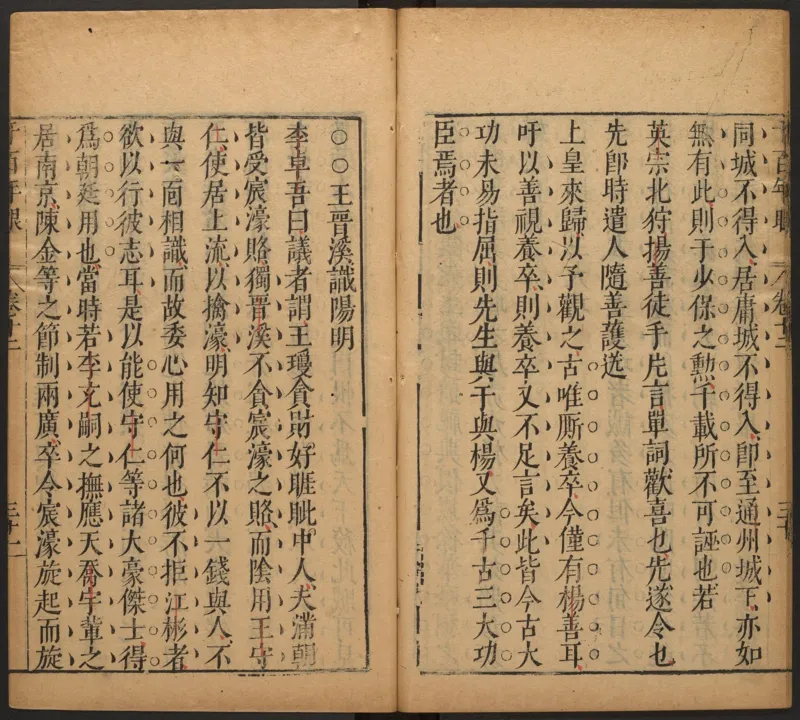 同城不得入居庸城不得入卽至通州城下亦如
無有此則于少保之勲千載所不可誣也若
英宗北狩揚善徒手片言單詞歡喜也先遂令也
先卽時遣人隨善護送
上皇來歸以予觀之古唯厮養卒今僅有楊善耳
吁以善視養卒則養卒又不足言矣此皆今古大
功未易指屈則先生與于與楊又爲千古三大功
臣焉者也
○○王晉溪識陽明
李卓吾曰議者謂王瓊貪財好睚眦中人夫滿朝
皆受宸濠賂獨晉溪不貪宸濠之賂而陰用王守
仁使居上流以擒濠明知守仁不以一錢與人不
與一面相識而故委心用之何也彼不拒江彬者
欲以行彼志耳是以能使守仁等諸大豪傑士得
爲朝廷用也當時若李充嗣之撫應天喬宇輩之
居南京陳金等之節制兩廣卒令宸濠旋起而旋